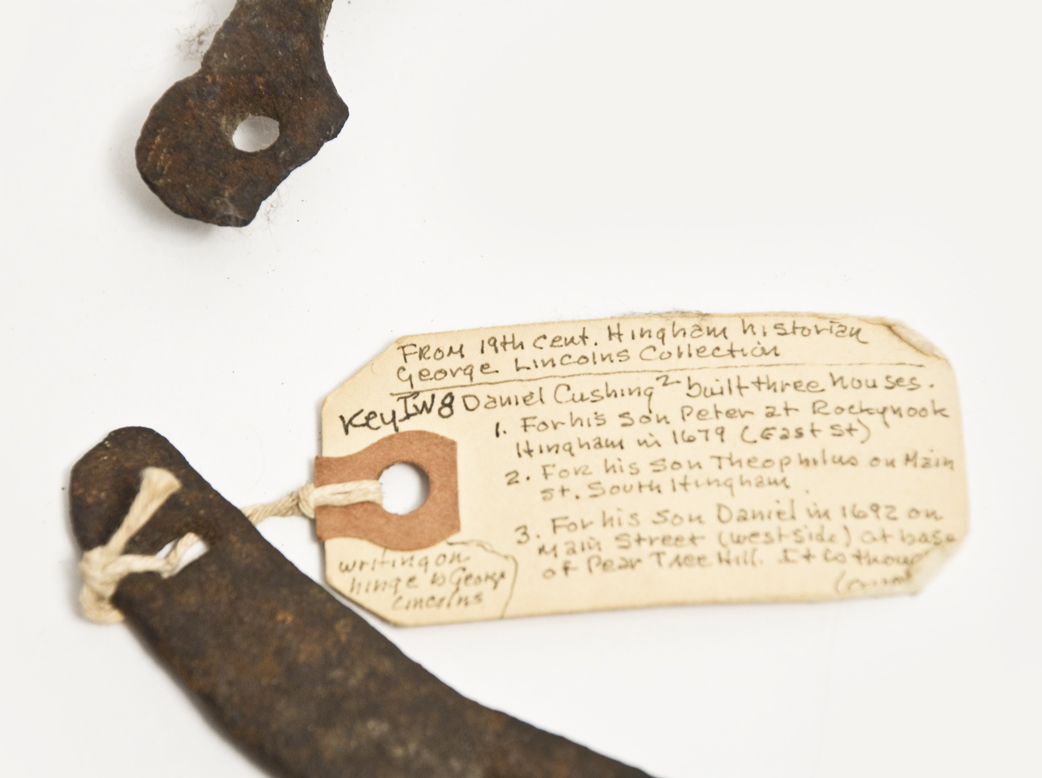 From 19th cent. Hingham historian
George Lincolns Collection
Key IW8
Daniel Cushing² built three houses.
1. For his son Peter at Rockynook
Hingham in 1679 (East St)
2. For his son Theophilus on Main
st. South Hingham.
3. For his son Daniel in 1692 on
Main Street (west side) at base
of Pear Tree Hill. It is
writing on
hinge is George
Lincolns